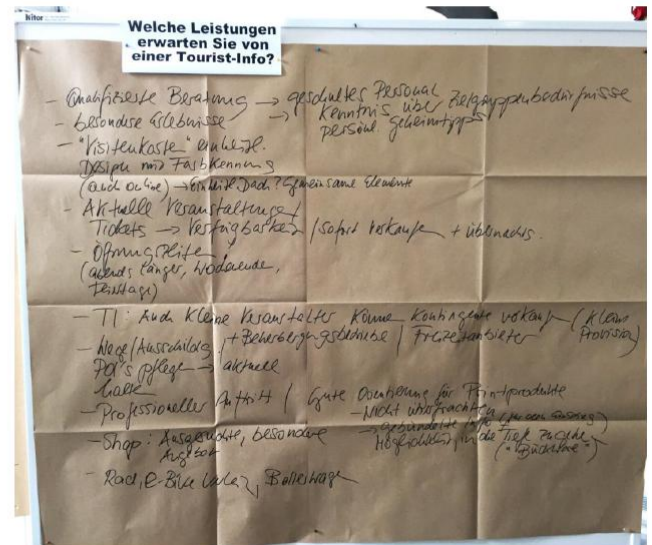 Welche Leistungen
erwarten Sie von
einer Tourist-Info?
- Qualifizierte Beratung → geschultes Personal
Kenntnis über Zielgruppenbedürfnisse
- besondere Erlebnisse → persönl. Geheimtipps
- "Visitenkarte" einheitl.
Design mit Farbkennung
(auch online) → Einheitl. Dach? Gemeinsame Elemente
- Aktuelle Veranstaltungen /
Tickets → Verfügbarkeit / sofort verkaufen + übernacht.
- Öffnungszeiten
(abends länger, Wochenende,
Feiertage)
- TI: Auch kleine Veranstalter können Kontingente verkaufen (kleine
Provision)
- Wege / Ausschilderg. / + Beherbergungsbetriebe / Freizeitanbieter
POI's pflege → aktuell
halten
- Professioneller Auftritt / Gute Orientierung für Printprodukte
- Nicht überfrachten
→ gebündelte Info
Möglichkeit, in die Tiefe zu gehen
- Shop: Ausgesuchte, besondere
Angebote
- Rad, E-Bike